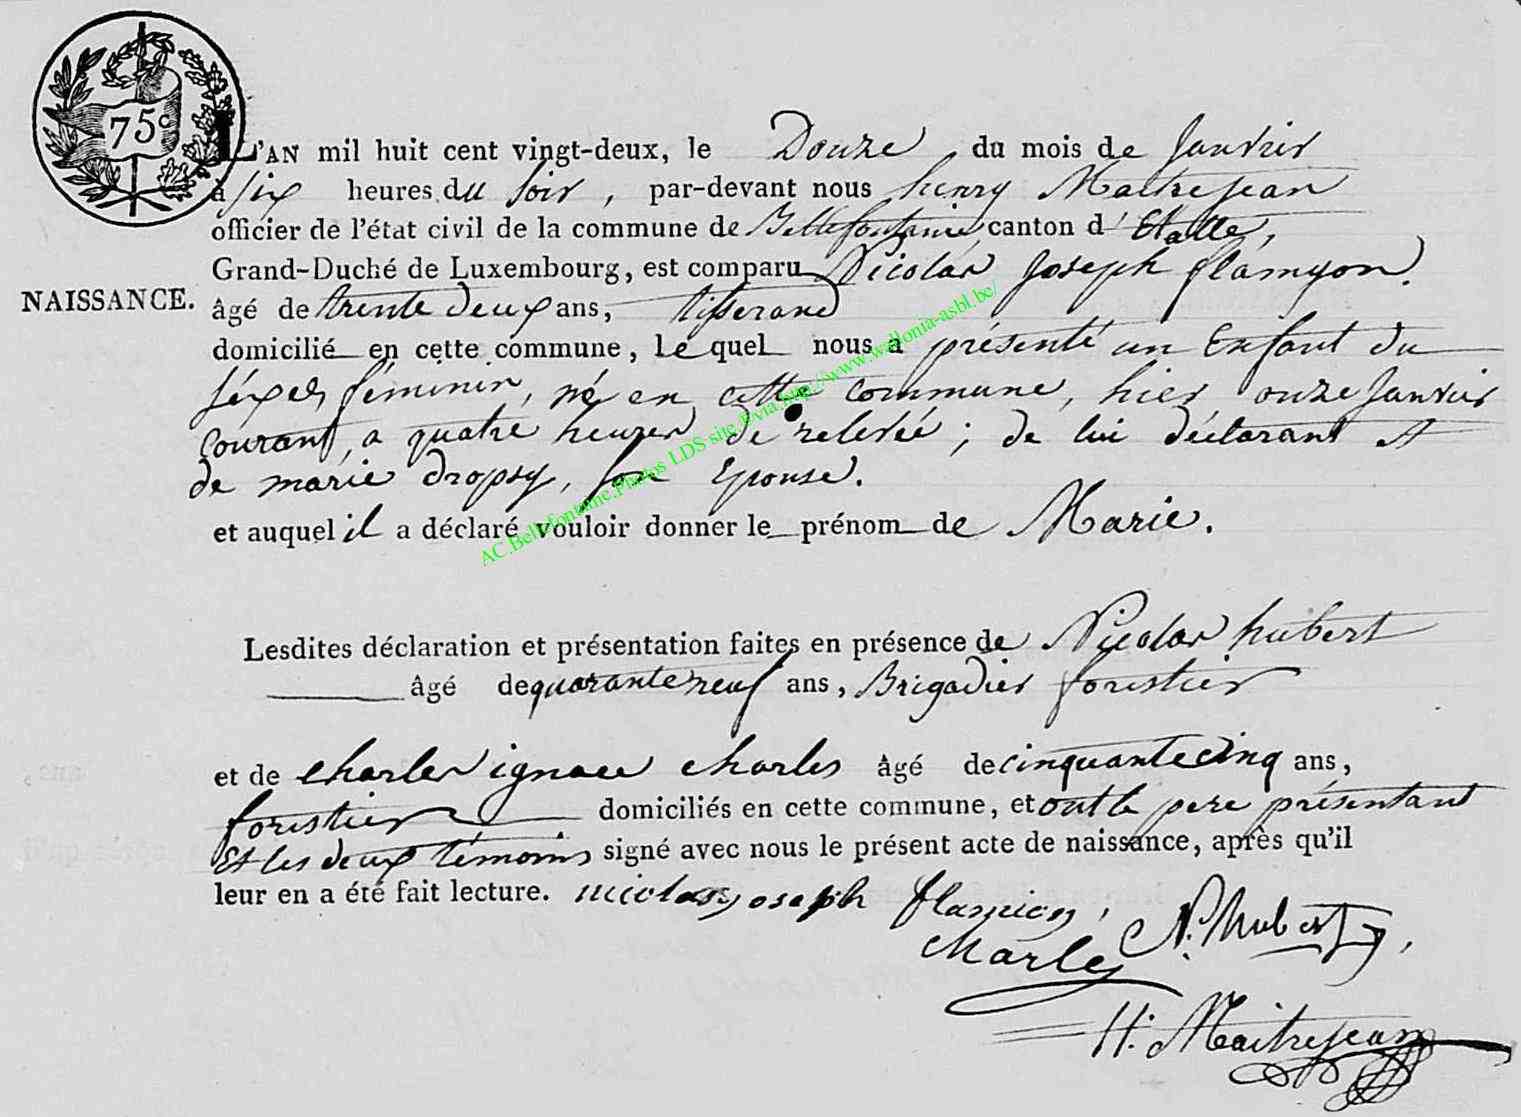 75c
L'AN mil huit cent vingt-deux, le Douze du mois de Janvier
à six heures du soir, par-devant nous henry Maitrejean
officier de l'état civil de la commune de Bellefontaine, canton d'Etalle,
Grand-Duché de Luxembourg, est comparu Nicolas Joseph flamyon.
NAISSANCE. âgé de trente deux ans, tisserand
domicilié en cette commune, lequel nous a présenté un Enfant du
séxe féminin, né en cette commune, hier onze Janvier
courant, a quatre heures de relevée ; de lui déclarant et
de marie dropsy, son Epouse.
et auquel il a déclaré vouloir donner le prénom de Marie.
AC.Bellefontaine.Photos LDS site Fvia http://www.wallonia-asbl.be/
Lesdites déclaration et présentation faites en présence de Nicolas hubert
âgé de quarante neuf ans, Brigadier forestier
et de charles ignace charles âgé de cinquante cinq ans,
forestier domiciliés en cette commune, et ont le pere présentant
Et les deux témoins signé avec nous le présent acte de naissance, après qu'il
leur en a été fait lecture. nicolas joseph flamion,
N. Hubert,
Charles
H. Maitrejean